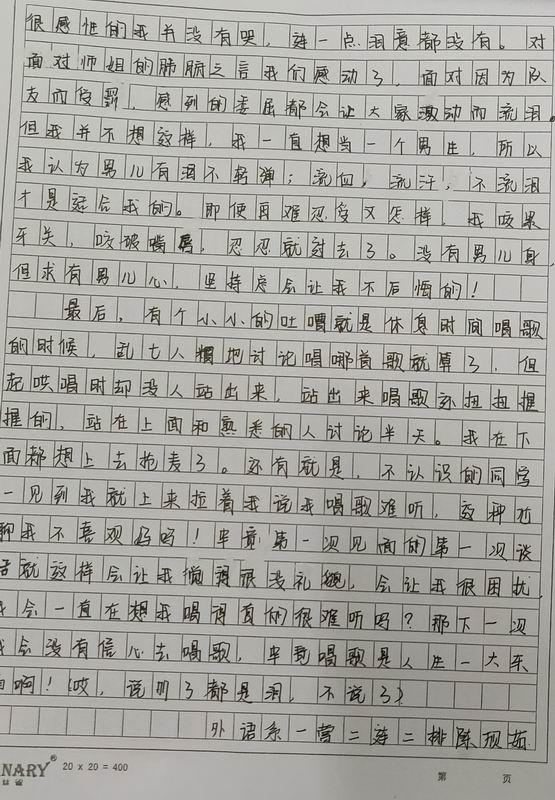 很感性的我并没有哭，连一点泪意都没有。对
面对师姐的肺腑之言我们感动了，面对因为队
友而受罚，感到的委屈都会让大家激动而流泪。
但我并不想这样，我一直想当一个男生，所以
我认为男儿有泪不轻弹；流血，流汗，不流泪
才是适合我的。即使再难忍受又怎样，我咬紧
牙关，咬破嘴唇，忍忍就过去了。没有男儿身，
但求有男儿心，坚持总会让我不后悔的！
最后，有个小小的吐嘈就是休息时间唱歌
的时候，乱七八糟地讨论唱哪首歌就算了，但
起哄唱时却没人站出来，站出来唱歌还扭扭捏
捏的，站在上面和熟悉的人讨论半天。我在下
面都想上去抢麦了。还有就是，不认识的同学
一见到我就上来拉着我说我唱歌难听，这种
聊我不喜欢吗！毕竟第一次见面的第一次谈
话就这样会让我觉得很没礼貌，会让我很困扰，
我会一直在想我唱得真的很难听吗？那下一次
我会没有信心去唱歌，毕竟唱歌是人生一大乐
啊！（哎，说多了都是泪，不说了）
外语系一营二连二排陈
NARY® 20 x 20 = 400
第 页